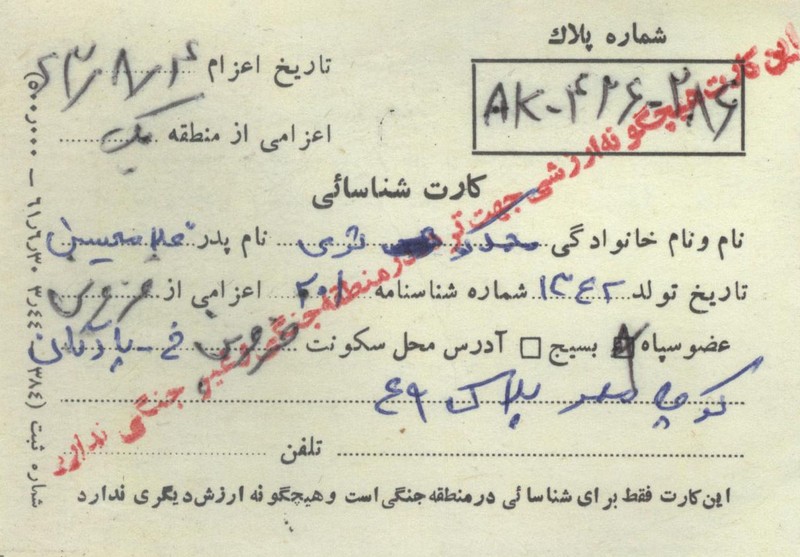 شماره پلاک
AK-426-286
تاریخ اعزام ۶۳/۸/۴
اعزامی از منطقه یک
کارت شناسائی
نام و نام خانوادگی محمد نام پدر غلامحسین
تاریخ تولد ۱۳۴۲ شماره شناسنامه ۲۰۱ اعزامی از قزوین
عضو سپاه بسیج آدرس محل سکونت قزوین خ-
کوچه پلاک ۴۹
تلفن
این کارت فقط برای شناسائی در منطقه جنگی است و هیچگونه ارزش دیگری ندارد
این کارت هیچگونه ارزشی جهت در منطقه جنگی و غیر جنگی ندارد
شماره ثبت (۳۸۴ - ۳٫۴۴ ۶۱٫۶٫۳۰ — ۵۰۰٫۰۰۰)